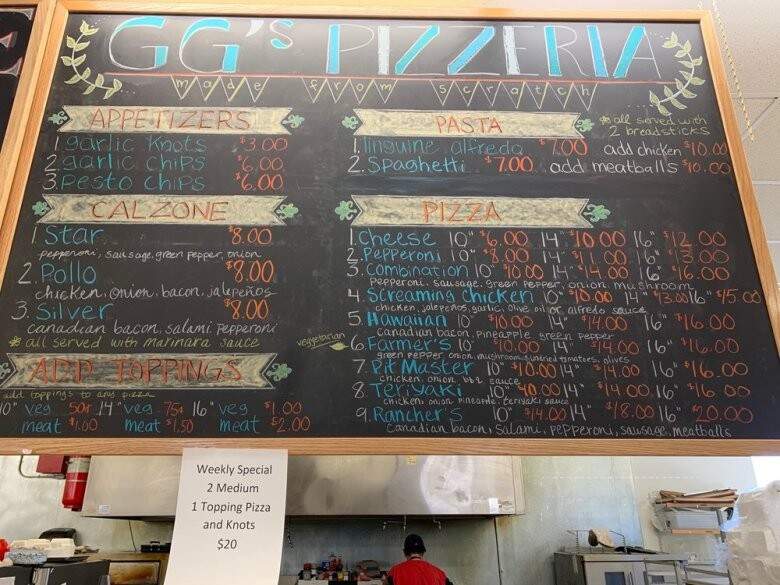 GG's PIZZERIA
made from scratch
APPETIZERS
1. garlic knots $3.00
2. garlic chips $6.00
3. pesto chips $6.00
CALZONE
1. Star $8.00
pepperoni, sausage, green pepper, onion
2. Pollo $8.00
chicken, onion, bacon, jalepeños
3. Silver $8.00
canadian bacon, salami, pepperoni
* all served with marinara sauce
ADD TOPPINGS
add toppings to any pizza
10" veg 50¢ 14" veg 75¢ 16" veg $1.00
meat $1.00 meat $1.50 meat $2.00
PASTA
* all served with
2 breadsticks
1. linguine alfredo $7.00 add chicken $10.00
2. Spaghetti $7.00 add meatballs $10.00
PIZZA
1. Cheese 10" $6.00 14" $10.00 16" $12.00
2. Pepperoni 10" $8.00 14" $11.00 16" $13.00
3. Combination 10" $10.00 14" $14.00 16" $16.00
Pepperoni, sausage, green pepper, onion, mushroom
4. Screaming chicken 10" $10.00 14" $13.00 16" $15.00
chicken, jalepeños, garlic, olive oil or alfredo sauce
5. Hawaiian 10" $10.00 14" $14.00 16" $16.00
Canadian bacon, pineapple, green pepper
vegetarian
6. Farmer's 10" $10.00 14" $14.00 16" $16.00
green pepper, onion, mushroom, sundried tomatoes, olives
7. Pit Master 10" $10.00 14" $14.00 16" $16.00
chicken, onion, bbq sauce
8. Teriyaki 10" $10.00 14" $14.00 16" $16.00
chicken, onion, pineapple, teriyaki sauce
9. Rancher's 10" $14.00 14" $18.00 16" $20.00
Canadian bacon, salami, pepperoni, sausage, meatballs
Weekly Special
2 Medium
1 Topping Pizza
and Knots
$20